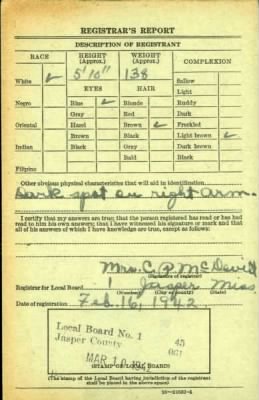 REGISTRAR'S REPORT
DESCRIPTION OF REGISTRANT
RACE HEIGHT (Approx.) WEIGHT (Approx.) COMPLEXION
5' 10" 138
White ✓ EYES HAIR Sallow
Light
Negro Blue ✓ Blonde Ruddy
Gray Red Dark
Oriental Hazel Brown ✓ Freckled
Brown Black Light brown ✓
Indian Black Gray Dark brown
Bald Black
Filipino
Other obvious physical characteristics that will aid in identification
Dark spot on right arm.
I certify that my answers are true; that the person registered has read or has had
read to him his own answers; that I have witnessed his signature or mark and that
all of his answers of which I have knowledge are true, except as follows:
Mrs. C. P. McDevitt
(Signature of registrar)
Registrar for Local Board 1 Jasper Miss
(Number) (City or county) (State)
Date of registration Feb. 16, 1942
Local Board No. 1 45
Jasper County
MAR 10 1942
(STAMP OF LOCAL BOARD)
(The stamp of the Local Board having jurisdiction of the registrant
shall be placed in the above space)